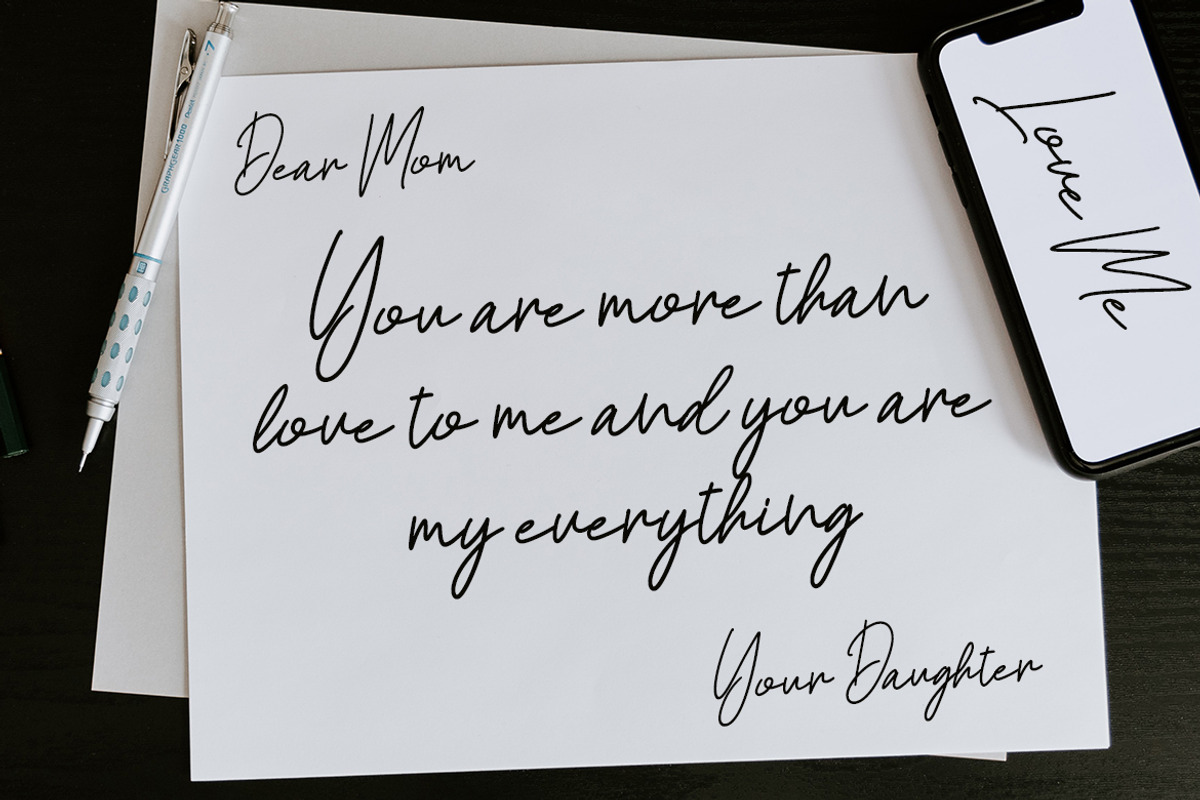 Dear Mom
You are more than
love to me and you are
my everything
Your Daughter
Love Me
GRAPHGEAR 1000 Pentel
7